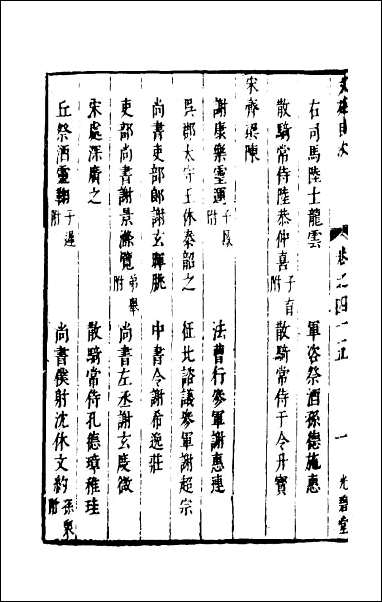 目次 卷之四十五 一 光碧堂
右司馬陸士龍雲 軍咨祭酒孫德施惠
散騎常侍陸恭仲喜子育附 散騎常侍干令升寶
宋齊梁陳
謝康樂靈運子附 法曹行參軍謝惠連
吳郡太守王休泰韶之 征北諮議參軍謝超宗
尚書吏部郎謝玄暉朓 中書令謝希逸莊
吏部尚書謝景滌覽弟舉附 尚書左丞謝玄度微
宋處深廣之 散騎常侍孔德璋稚珪
丘祭酒靈鞠子遲附 尚書僕射沈休文約孫衆附